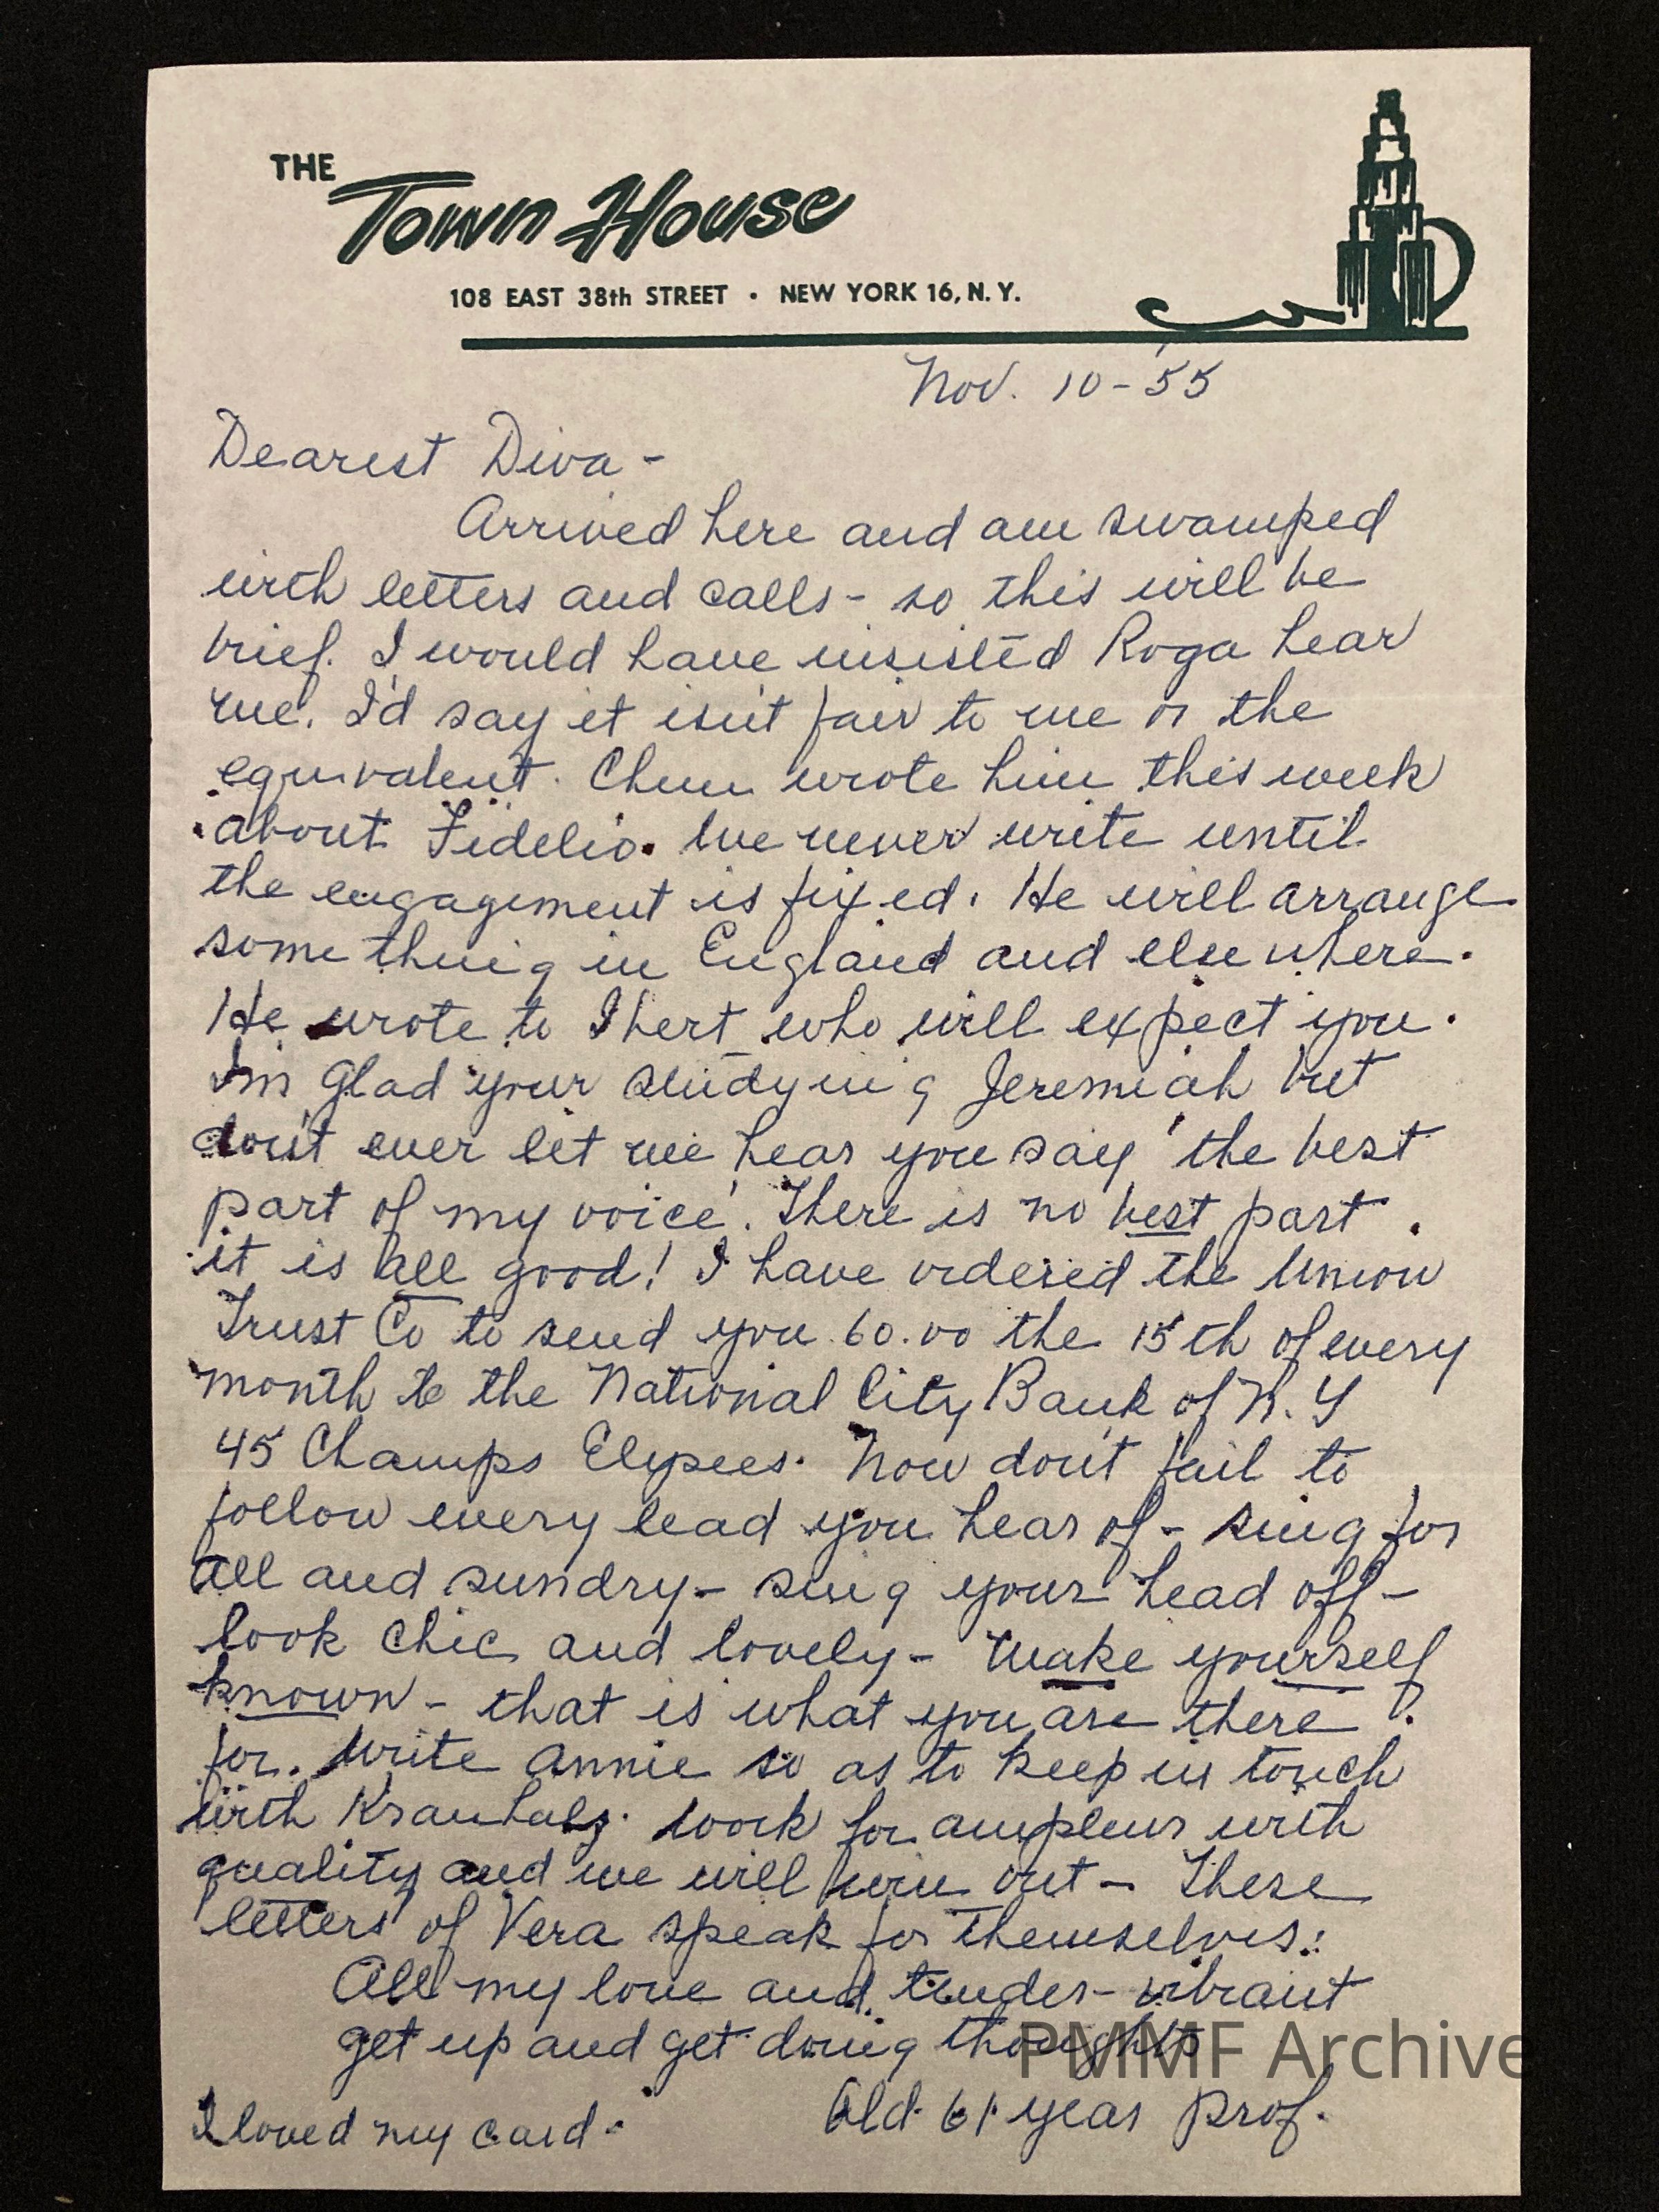 THE
Town House
108 EAST 38th STREET · NEW YORK 16, N.Y.
Nov. 10-'55
Dearest Diva -
Arrived here and am swamped
with letters and calls - so this will be
brief. I would have insisted Roga hear
me. I'd say it isn't fair to me or the
equivalent. Chum wrote him this week
about Fidelio. We never write until
the engagement is fixed. He will arrange
something in England and elsewhere.
He wrote to Ihert who will expect you.
I'm glad your studying Jeremiah but
don't ever let me hear you say 'the best
part of my voice'. There is no best part.
it is all good! I have ordered the Union
Trust Co to send you 60.00 the 15th of every
month to the National City Bank of N.Y
45 Champs Elysees. Now don't fail to
follow every lead you hear of - sing for
all and sundry - sing your head off -
look chic and lovely - make yourself
known - that is what you are there
for. Write Annie so as to keep in touch
with Kranhals. Work for ampleur with
quality and we will win out - These
letters of Vera speak for themselves.
All my love and tender - vibrant
get up and get doing thoughts
Old 61 year Prof.
I loved my card -
PMMF Archive